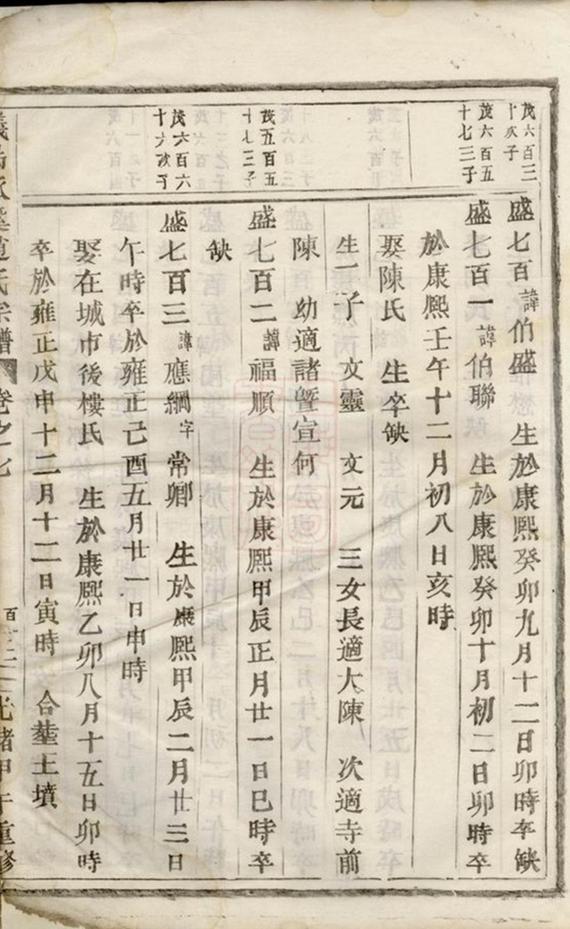 茂六百三
十次子
茂六百五
十七三子
茂五百五
十七三子
茂六百六
十六次子
盛七百諱伯盛 生於康熙癸卯九月十二日卯時卒缺
盛七百一諱伯聯 生於康熙癸卯十月初二日卯時卒
於康熙壬午十二月初八日亥時
娶陳氏 生卒缺
生二子 文靈 文元 三女長適大陳 次適寺前
陳 幼適諸暨宣何
盛七百二諱福順 生於康熙甲辰正月廿一日巳時卒
缺
盛七百三諱應綱字常卿 生於康熙甲辰二月廿三日
午時卒於雍正己酉五月廿一日申時
娶在城市後樓氏 生於康熙乙卯八月十五日卯時
卒於雍正戊申十二月十二日寅時 合墓土墳
氏宗譜 卷之七 光緒甲午重修